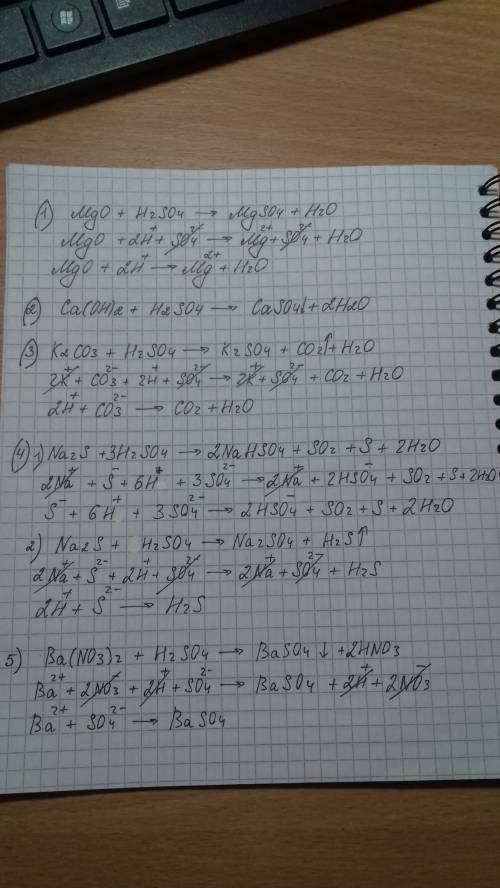 1) MgO + H2SO4 → MgSO4 + H2O
MgO + 2H⁺ + SO4²⁻ → Mg²⁺ + SO4²⁻ + H2O
MgO + 2H⁺ → Mg²⁺ + H2O
2) Ca(OH)2 + H2SO4 → CaSO4↓ + 2H2O
3) K2CO3 + H2SO4 → K2SO4 + CO2↑ + H2O
2K⁺ + CO3²⁻ + 2H⁺ + SO4²⁻ → 2K⁺ + SO4²⁻ + CO2 + H2O
2H⁺ + CO3²⁻ → CO2 + H2O
4) 1) Na2S + 3H2SO4 → 2NaHSO4 + SO2 + S + 2H2O
2Na⁺ + S⁻ + 6H⁺ + 3SO4²⁻ → 2Na⁺ + 2HSO4⁻ + SO2 + S + 2H2O
S⁻ + 6H⁺ + 3SO4²⁻ → 2HSO4⁻ + SO2 + S + 2H2O
2) Na2S + H2SO4 → Na2SO4 + H2S↑
2Na⁺ + S²⁻ + 2H⁺ + SO4²⁻ → 2Na⁺ + SO4²⁻ + H2S
2H⁺ + S²⁻ → H2S
5) Ba(NO3)2 + H2SO4 → BaSO4↓ + 2HNO3
Ba²⁺ + 2NO3⁻ + 2H⁺ + SO4²⁻ → BaSO4 + 2H⁺ + 2NO3⁻
Ba²⁺ + SO4²⁻ → BaSO4